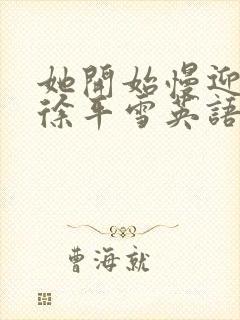 她開始慢迎
徐平雪英語
曹海就